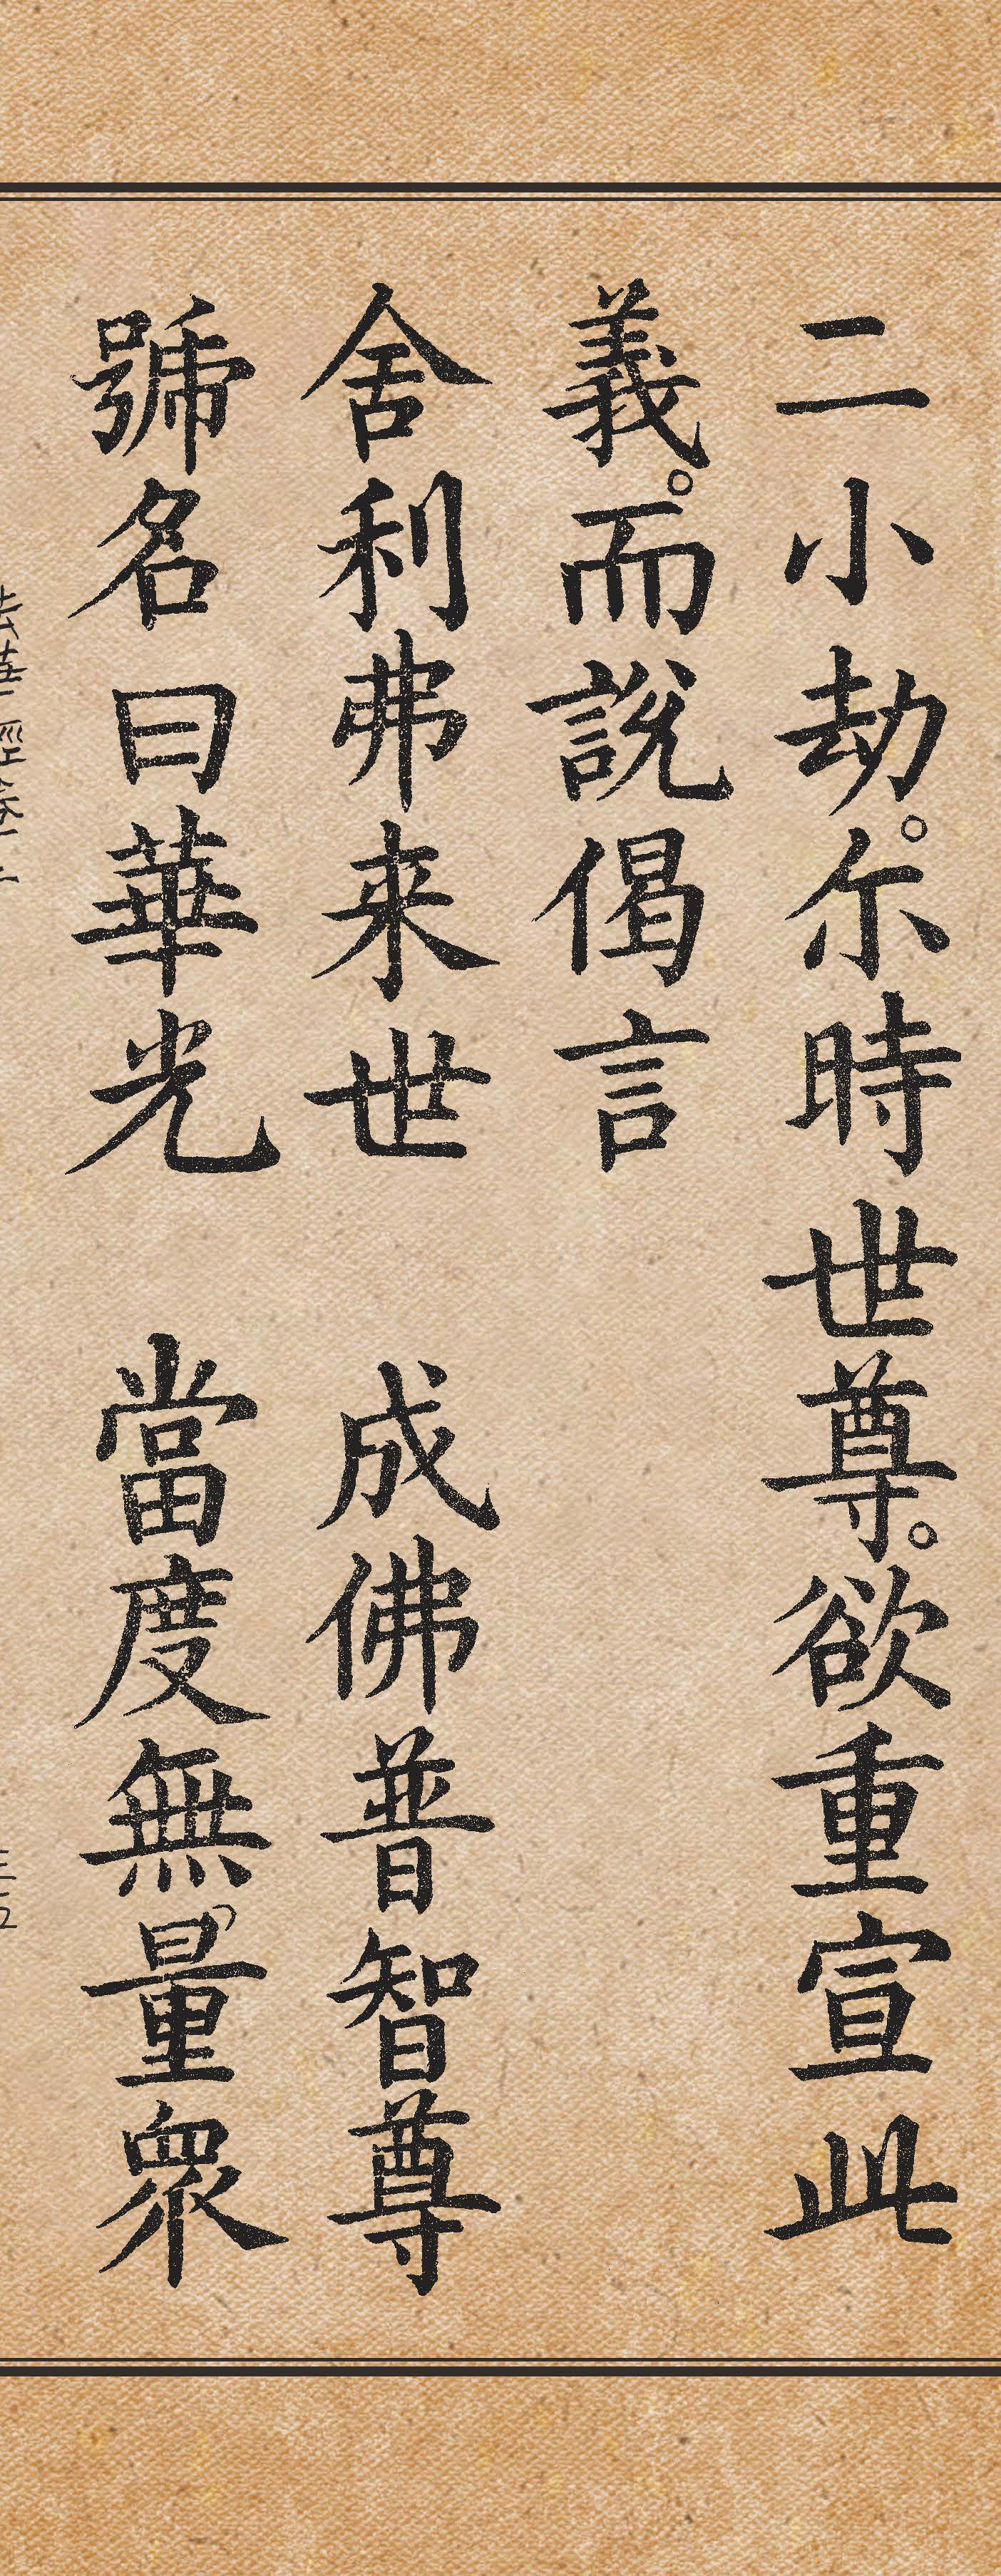 二小劫。尒時世尊。欲重宣此
義。而說偈言
舍利弗来世　成佛普智尊
號名曰華光　當度無量衆